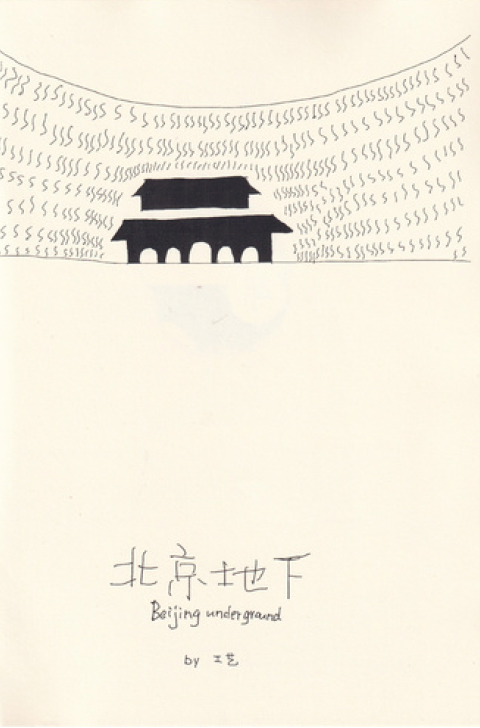 北京地下
Beijing underground
by 工艺